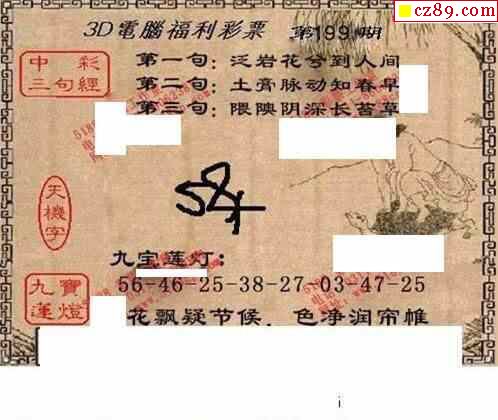 cz89.com
3D電腦福利彩票 第199期
中彩三句經
第一句:泛岩花兮到人间
第二句:土膏脉动知春早
第三句:隈隩阴深长苔草
天機字
584
九宝莲灯:
九寶蓮燈
56-46-25-38-27 03-47-25
花飘疑节候、色净润帘帷
i